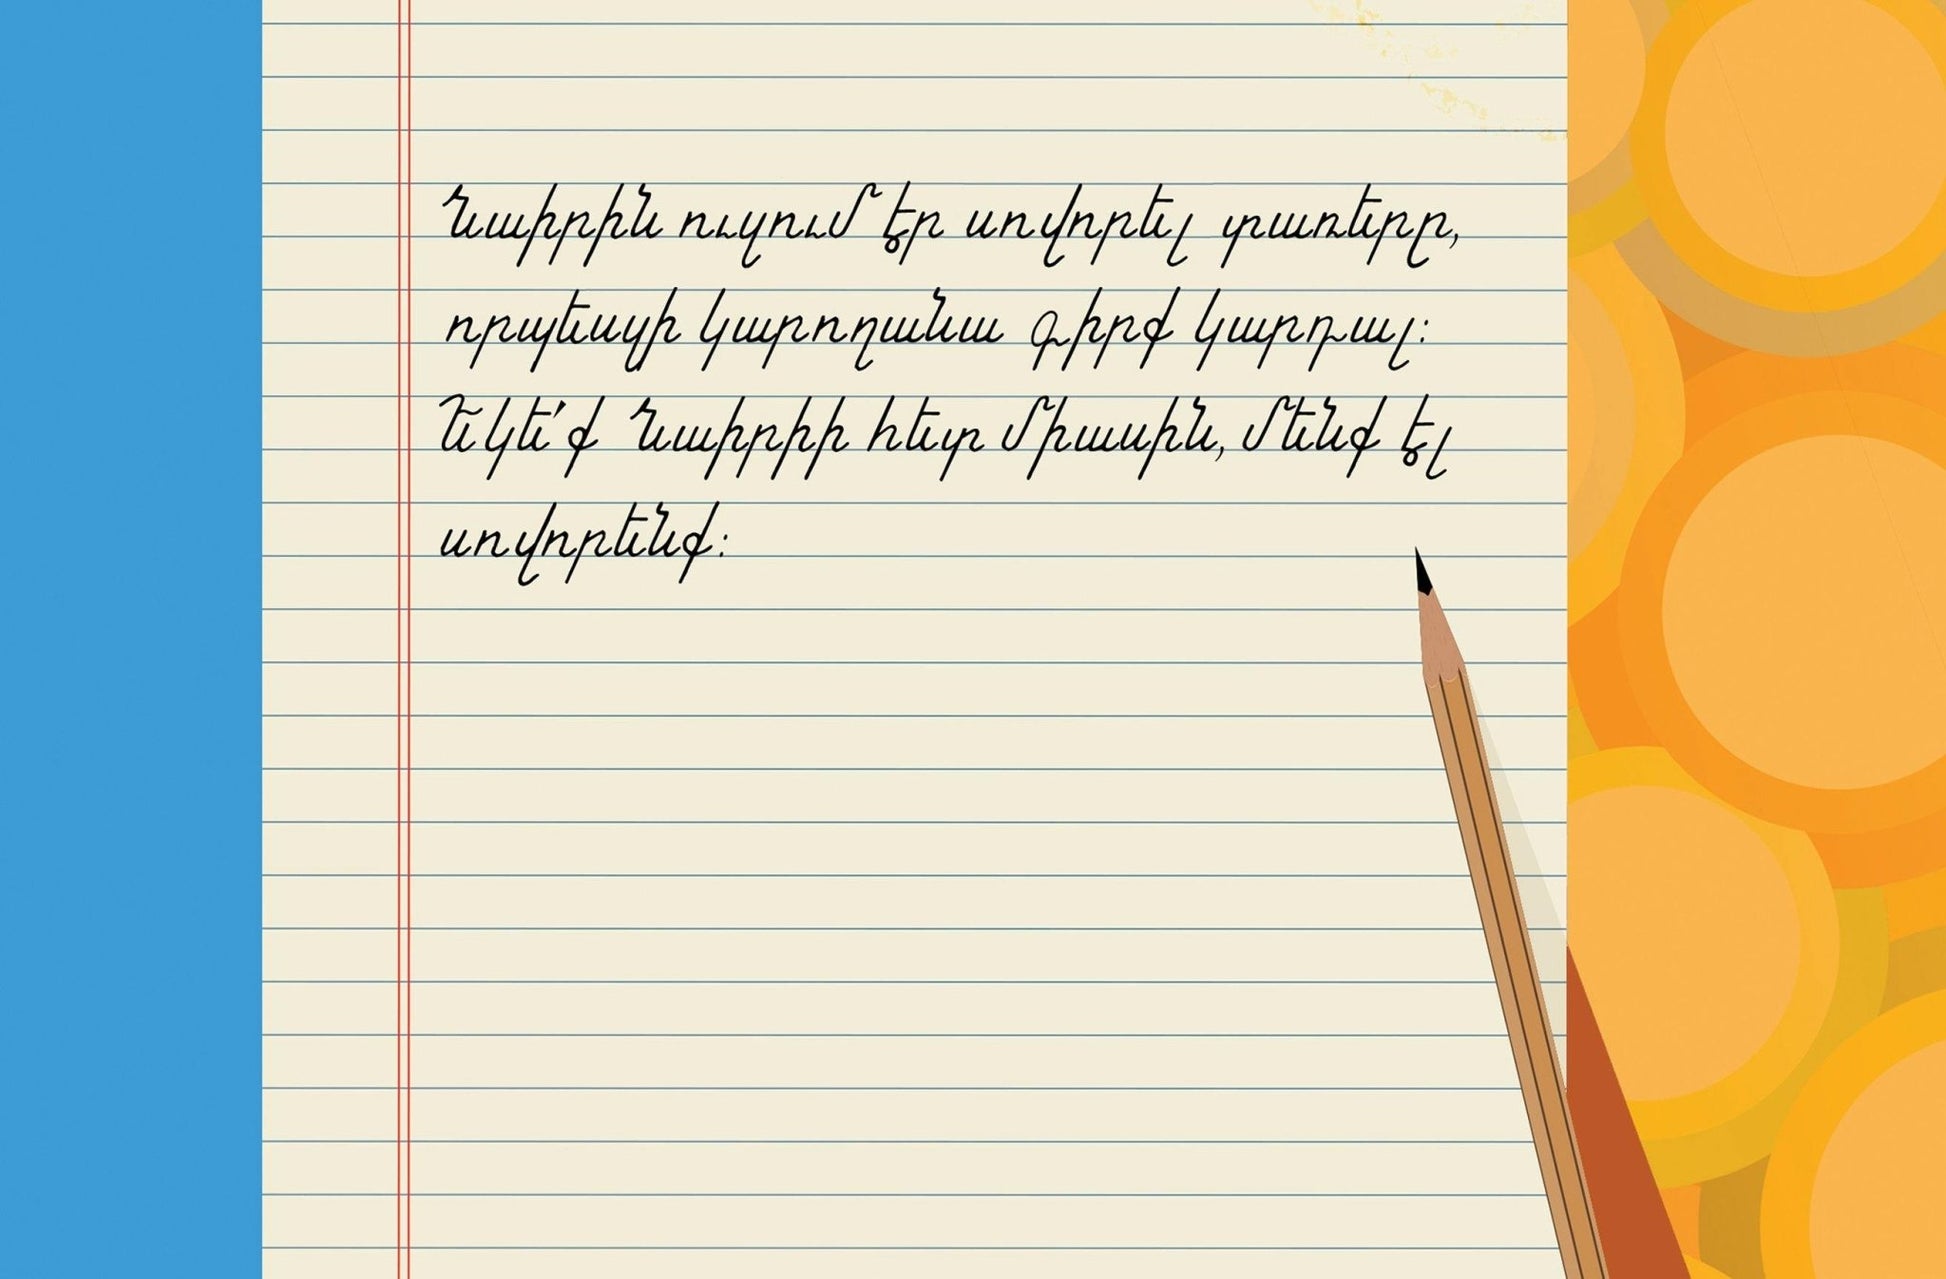 Նաիրին ուզում էր սովորել տառերը,
որպեսզի կարողանա գիրք կարդալ:
Եկե՛ք Նաիրիի հետ միասին, մենք էլ
սովորենք: